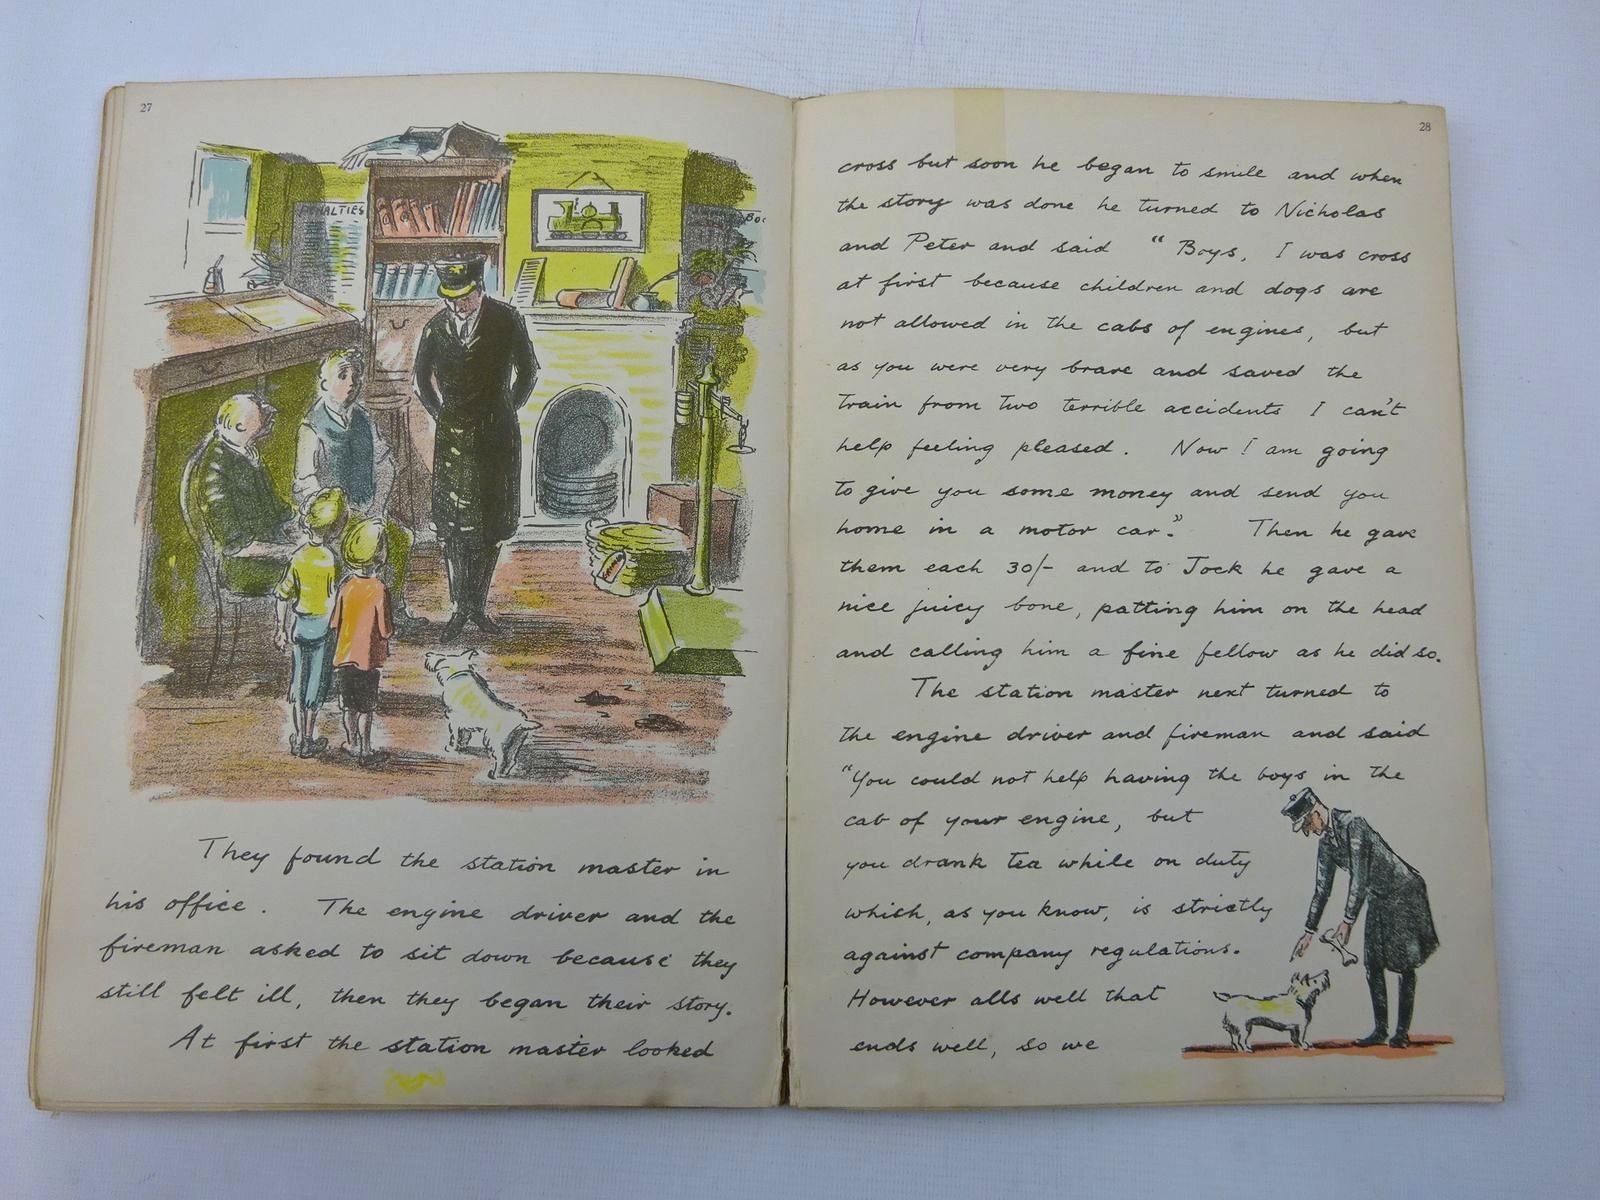 27
PENALTIES
They found the station master in
his office. The engine driver and the
fireman asked to sit down because they
still felt ill, then they began their story.
At first the station master looked
28
cross but soon he began to smile and when
the story was done he turned to Nicholas
and Peter and said "Boys, I was cross
at first because children and dogs are
not allowed in the cabs of engines, but
as you were very brave and saved the
train from two terrible accidents I can't
help feeling pleased. Now I am going
to give you some money and send you
home in a motor car." Then he gave
them each 30/- and to Jock he gave a
nice juicy bone, patting him on the head
and calling him a fine fellow as he did so.
The station master next turned to
the engine driver and fireman and said
"You could not help having the boys in the
cab of your engine, but
you drank tea while on duty
which, as you know, is strictly
against company regulations.
However alls well that
ends well, so we